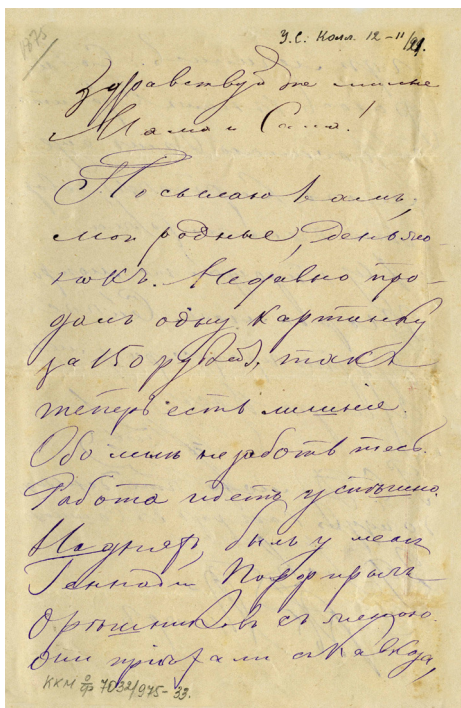 1875
У.С. Колл. 12-11/21.
Здравствуйте милые
Мама и Саша!
Посылаю Вамъ,
мои родные, деньжо-
нокъ. Недавно про-
далъ одну картинку
за 150 рублей, такъ
теперь есть лишнiе.
Обо мнѣ не заботьтесь.
Работа идетъ успѣшно.
На дняхъ, былъ у меня
Геннадiй Порфирычъ
Орѣшниковъ съ женою.
Они прiѣхали съ Кавказа,
ККМ 7032/975-33.